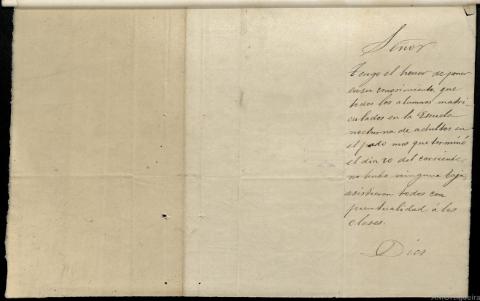 Señor
Tengo el honor de poner
en su conocimiento que
todos los alumnos matri
culados en la Escuela
nocturna de adultos en
el pdo mes que terminó
el dia 20 del corriente
no hubo ninguna baja
asistieron todos con
puntualidad á las
clases.
Dios